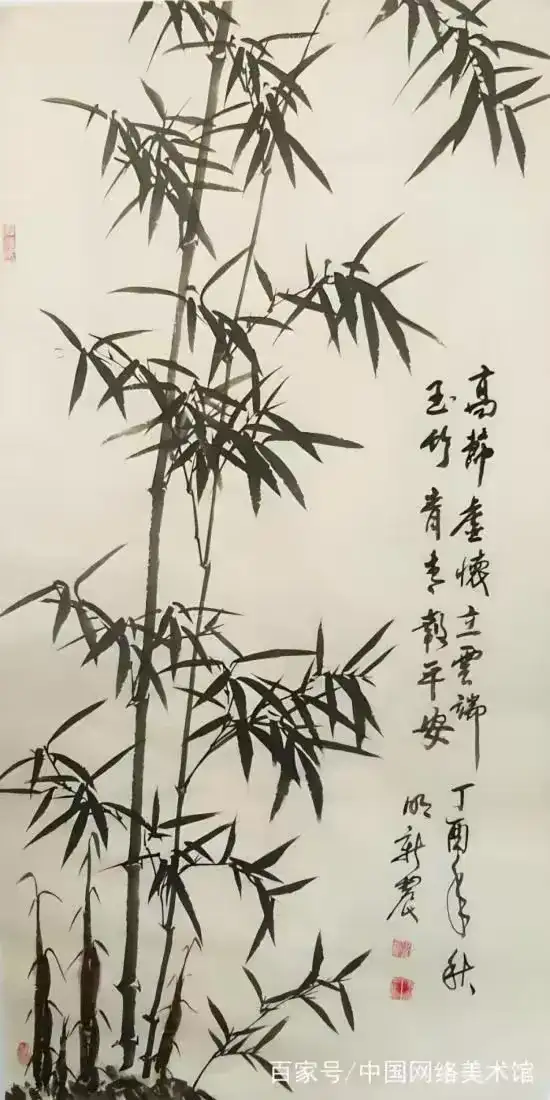 高節虚懷立雲端
玉竹青青報平安
丁酉年秋
明新農
百家号/中国网络美术馆